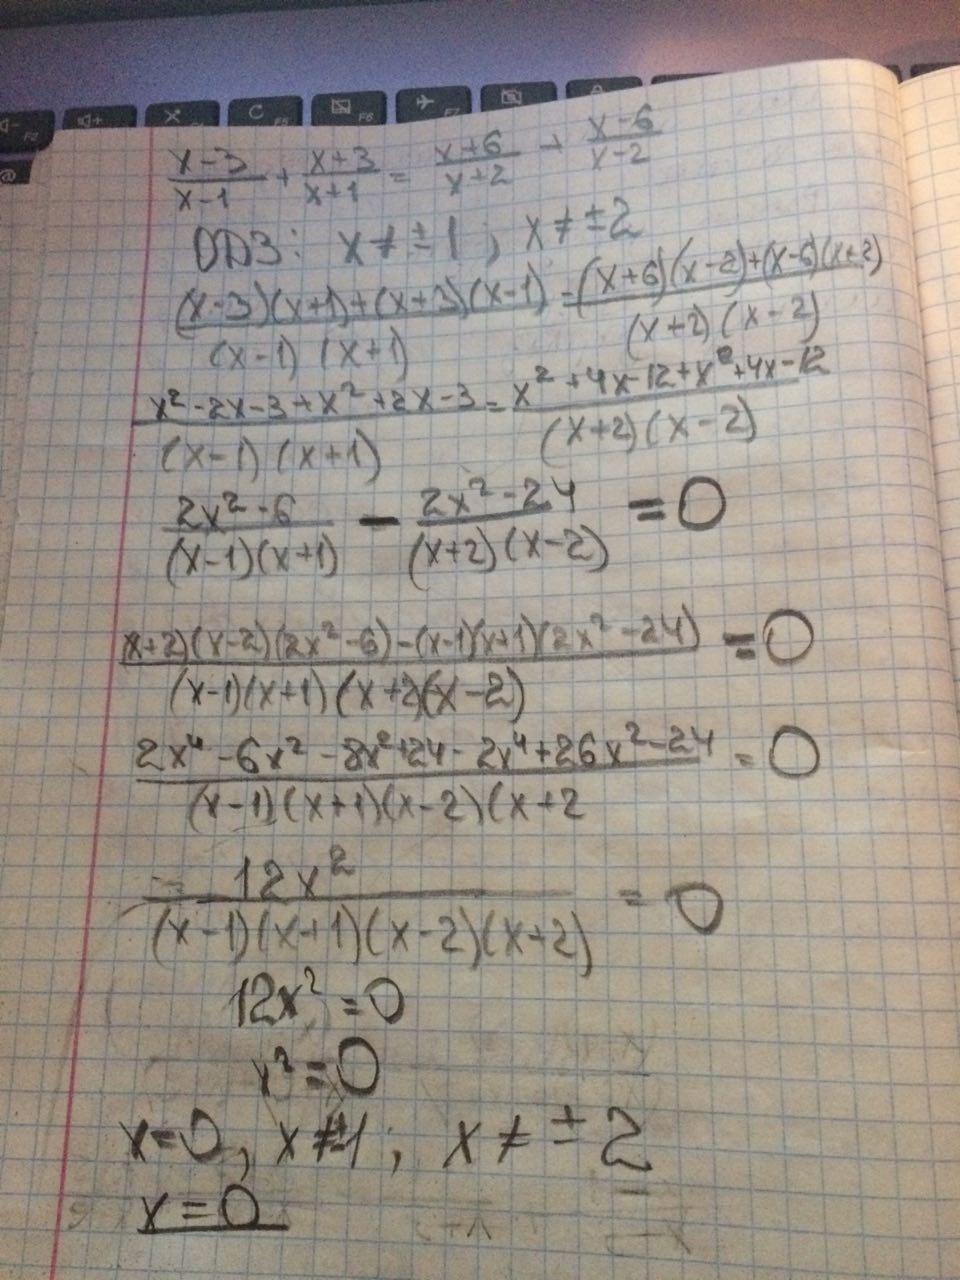 F2 F5 F6 F7
@
(x-3)/(x-1) + (x+3)/(x+1) = (x+6)/(x+2) + (x-6)/(x-2)
ОДЗ: x ≠ ±1 ; x ≠ ±2
((x-3)(x+1)+(x+3)(x-1))/((x-1)(x+1)) = ((x+6)(x-2)+(x-6)(x+2))/((x+2)(x-2))
(x²-2x-3+x²+2x-3)/((x-1)(x+1)) = (x²+4x-12+x²+4x-12)/((x+2)(x-2))
(2x²-6)/((x-1)(x+1)) - (2x²-24)/((x+2)(x-2)) = 0
((x+2)(x-2)(2x²-6)-(x-1)(x+1)(2x²-24))/((x-1)(x+1)(x+2)(x-2)) = 0
(2x⁴-6x²-8x²+24-2x⁴+26x²-24)/((x-1)(x+1)(x-2)(x+2 = 0
12x²/((x-1)(x+1)(x-2)(x+2)) = 0
12x² = 0
x² = 0
x=0, x ≠ ±1 ; x ≠ ±2
x = 0